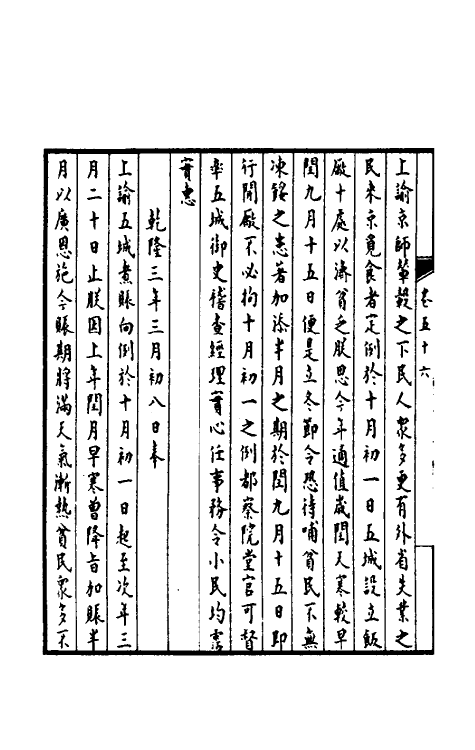 卷五十六
上諭京師輦轂之下民人衆多更有外省失業之
民來京覓食者定例於十月初一日五城設立飯
廠十處以濟窮乏朕思今年適值歲閏天寒較早
閏九月十五日便是立冬節令恐待哺貧民不無
凍餒之患著加添半月之期於閏九月十五日即
行開廠不必拘十月初一之例都察院堂官可督
率五城御史稽查經理實心任事務令小民均霑
實惠
乾隆三年三月初八日奉
上諭五城煮賑向例於十月初一日起至次年三
月二十日止朕因上年閏月早寒曾降旨加賑半
月以廣恩施今賑期將滿天氣漸熱貧民衆多不